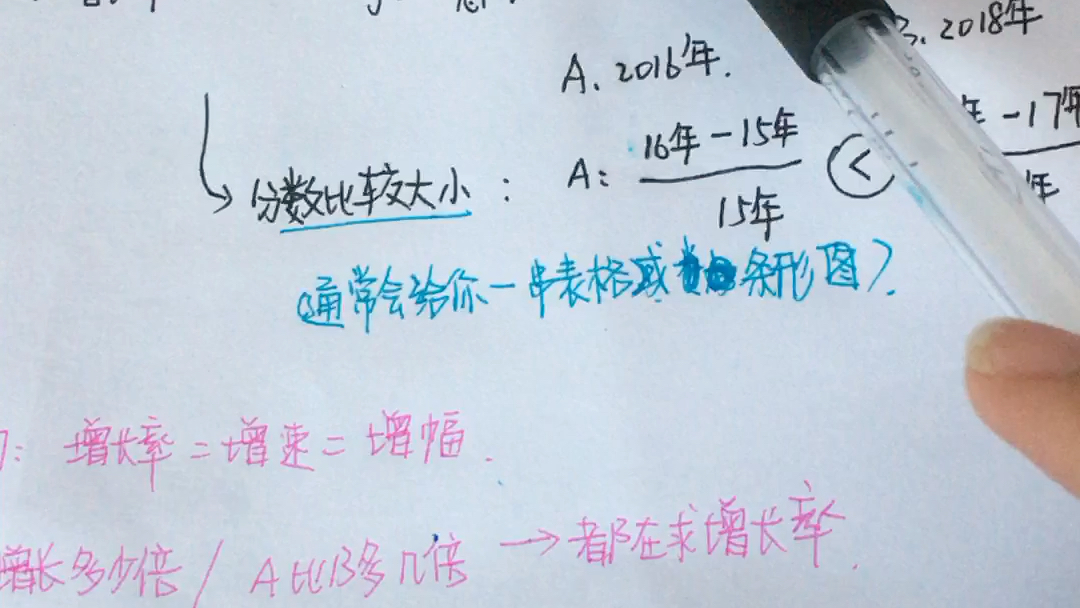 A、2016年. 3、2018年
A: 16年-15年/15年 < 年-17年/年
分数比较大小:
通常会给你一串表格或条形图)
: 增长率=增速=增幅.
增长多少倍/A比B多几倍→都在求增长率.